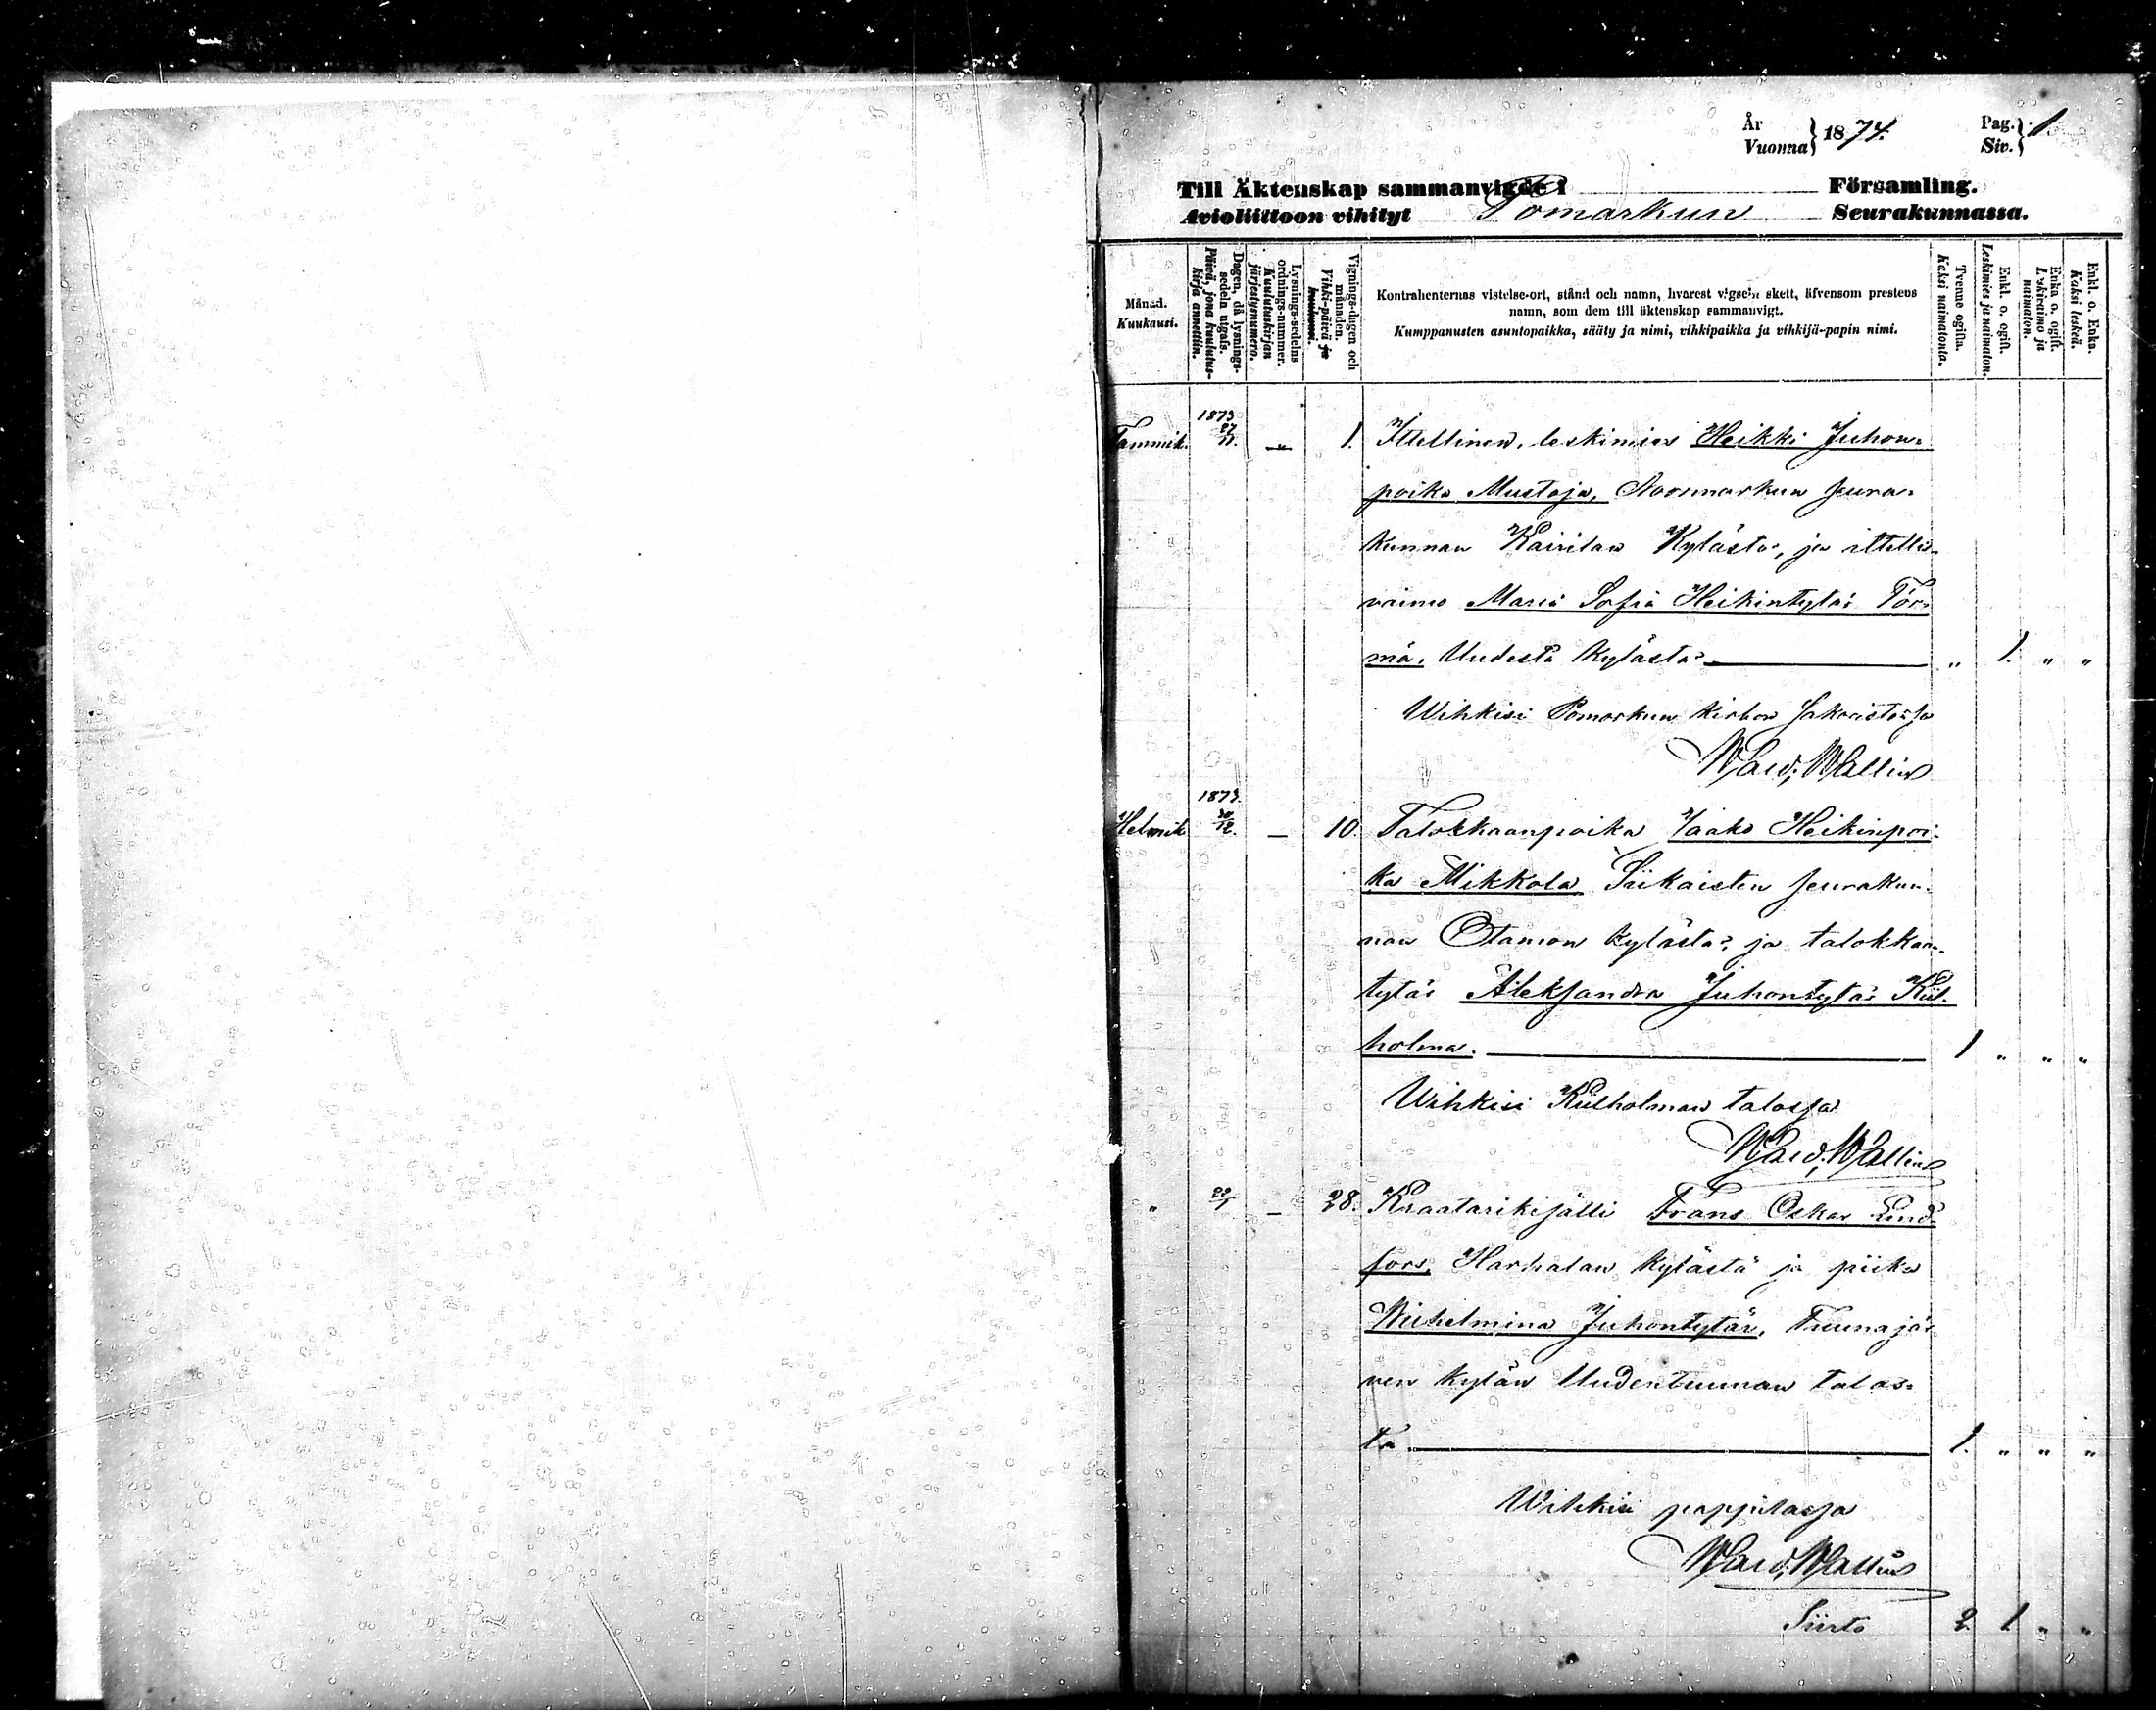 År
Vuonna } 1874.
Pag.
Siv. } 1.
Till Äktenskap sammanvigde i Församling.
Avioliittoon vihityt Pomarkun Seurakunnassa.
Månad.
Kuukausi.
Dagen, då lysnings-
sedeln utgafs.
Päivä, jona kuulutus-
kirja annettiin.
Lysnings-sedelns
ordnings-nummer.
Kuulutuskirjan
järjestysnumero.
Vignings-dagen och
månaden.
Vihki-päivä ja
kuukausi.
Kontrahenternas vistelse-ort, stånd och namn, hvarest vigseln skett, äfvensom prestens
namn, som dem till äktenskap sammanvigt.
Kumppanusten asuntopaikka, sääty ja nimi, vihkipaikka ja vihkijä-papin nimi.
Tvenne ogifta.
Kaksi naimatonta.
Enkl. o. ogift.
Leskimies ja naimaton.
Enka o. ogift.
Leskivaimo ja
naimaton.
Enkl. o. Enka.
Kaksi leskeä.
1873
Tammik. 27/11. — 1. Ittellinen, leskimies Heikki Juhon-
poika Mustaja, Noormarkun seura-
kunnan Kairilan Kylästä, ja ittellis-
vaimo Maria Sofia Heikintytär Tör-
mä, Uudesta kylästä — " 1. " "
Wihkisi Pomarkun kirkon sakaristossa
Wald. Wallin
1873.
Helmik. 30/12. — 10. Talokkaanpoika Jaako Heikinpoi-
ka Mikkola Siikaisten seurakun-
nan Otamon kylästä, ja talokkaan-
tytär Aleksandra Juhontytär Kiil-
holma. — 1 " " "
Wihkisi Kiilholman talossa
Wald. Wallin
" 22/1 — 28. Kraatarikisälli Frans Oskar Lind-
fors, Harhalan kylästä ja piika
Wilhelmina Juhontytär, Tuunajär-
ven kylän Uudentuunan talos-
ta — 1. " " "
Wihkisi pappilassa
Wald. Wallin
Siirto 2. 1 " "